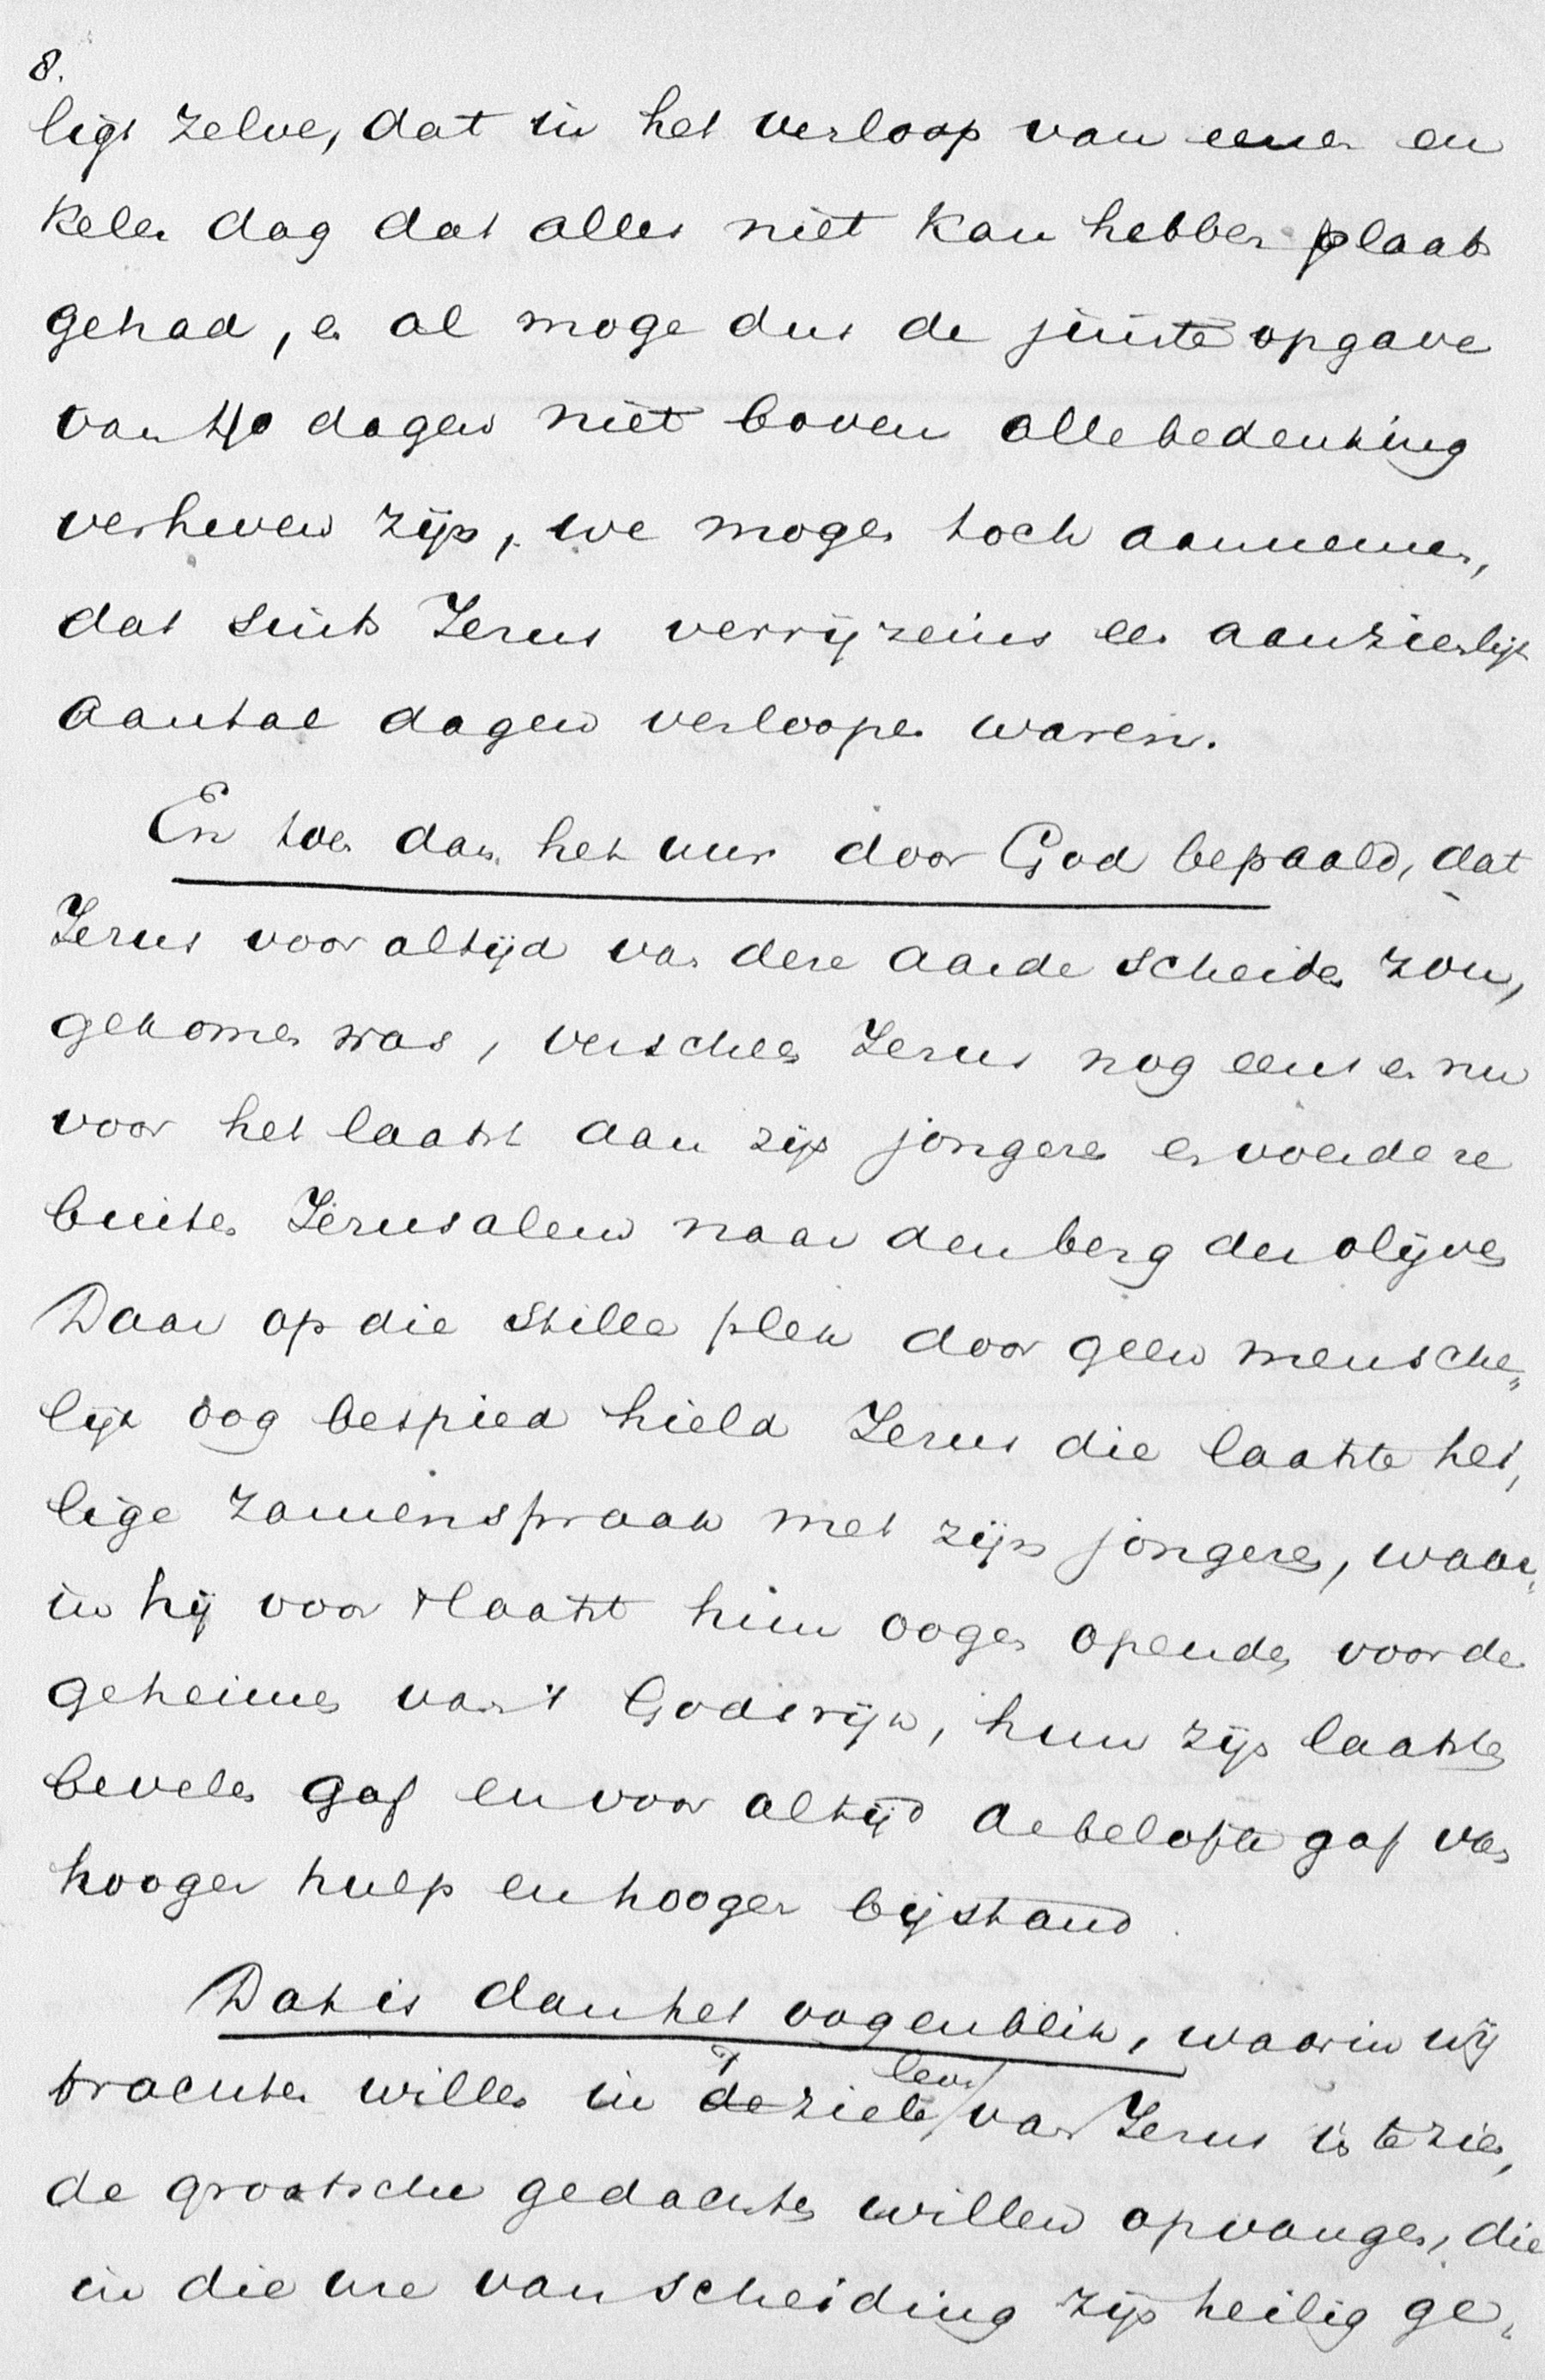 8.
ligt zelve, dat in het verloop van eenen en
kelen dag dat alles niet kan hebben plaats
gehad, en al moge dus de juiste opgave
van 40 dagen niet boven alle bedenking
verheven zijn, we mogen toch aannemen,
dat sints Jezus verrijzenis een aanzienlijk
aantal dagen verloopen waren.
En toen dan het uur door God bepaald, dat
Jezus voor altijd van deze aarde scheiden zou,
gekomen was, verscheen Jezus nog eens en nu
voor het laatst aan zijn jongeren en voerde ze
buiten Jerusalem naar den berg der olijven
Daar op die stille plek door geen mensche„
lijk oog bespied hield Jezus die laatste hei„
lige zamenspraak met zijn jongeren, waar„
in hij voor 't laatst hun oogen opende voor de
geheimen van 't Godsrijk, hun zijn laatste
bevelen gaf en voor altijd de belofte gaf van
hooger hulp en hooger bijstand.
Dat is dan het oogenblik, waarin wij
trachten willen in 't de zieleleven van Jezus in te zien,
de grootsche gedachten willen opvangen, die
in die ure van scheiding zijn heilig ge„